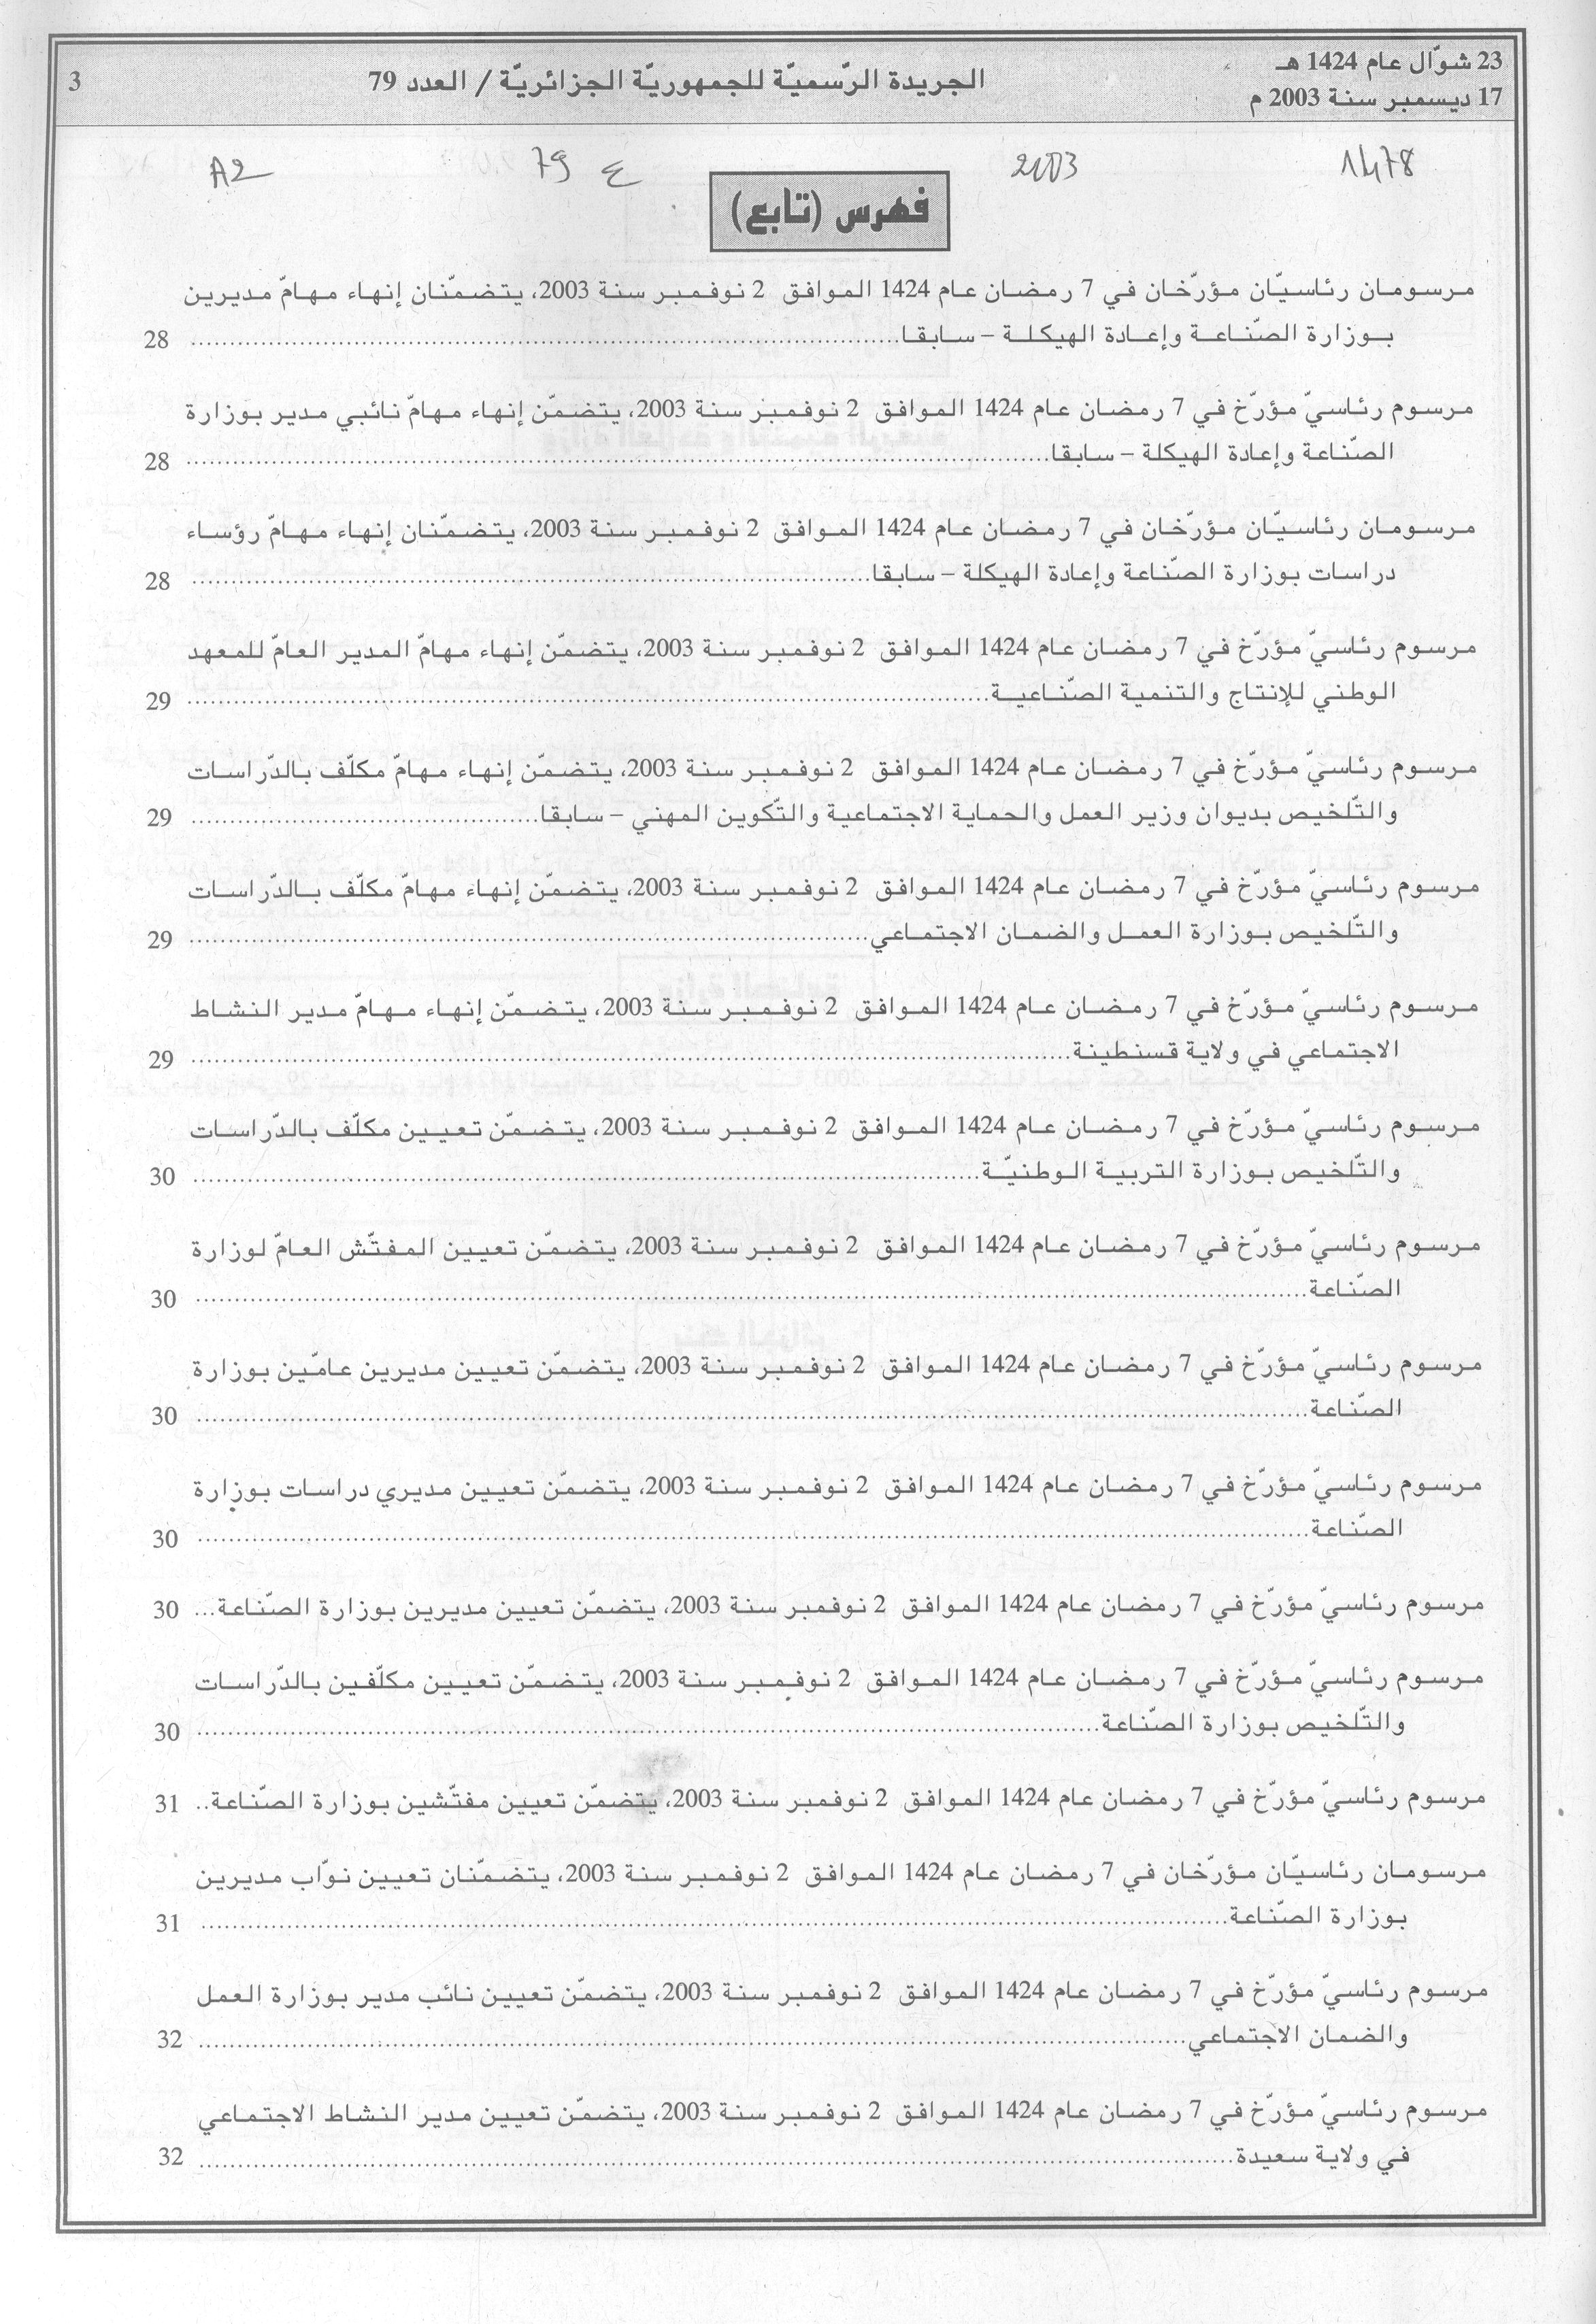 23 شوّال عام 1424 هـ
17 ديسمبر سنة 2003 م
الجريدة الرّسميّة للجمهوريّة الجزائريّة / العدد 79
3
1478
2003
ع 79
A2
فهرس (تابع)
مرسومان رئاسيّان مؤرّخان في 7 رمضان عام 1424 الموافق 2 نوفمبر سنة 2003، يتضمّنان إنهاء مهامّ مديرين
بوزارة الصّناعة وإعادة الهيكلة – سابقا........ 28
مرسوم رئاسيّ مؤرّخ في 7 رمضان عام 1424 الموافق 2 نوفمبر سنة 2003، يتضمّن إنهاء مهامّ نائبي مدير بوزارة
الصّناعة وإعادة الهيكلة – سابقا........ 28
مرسومان رئاسيّان مؤرّخان في 7 رمضان عام 1424 الموافق 2 نوفمبر سنة 2003، يتضمّنان إنهاء مهامّ رؤساء
دراسات بوزارة الصّناعة وإعادة الهيكلة – سابقا........ 28
مرسوم رئاسيّ مؤرّخ في 7 رمضان عام 1424 الموافق 2 نوفمبر سنة 2003، يتضمّن إنهاء مهامّ المدير العامّ للمعهد
الوطني للإنتاج والتنمية الصّناعية........ 29
مرسوم رئاسيّ مؤرّخ في 7 رمضان عام 1424 الموافق 2 نوفمبر سنة 2003، يتضمّن إنهاء مهامّ مكلّف بالدّراسات
والتّلخيص بديوان وزير العمل والحماية الاجتماعية والتّكوين المهني – سابقا........ 29
مرسوم رئاسيّ مؤرّخ في 7 رمضان عام 1424 الموافق 2 نوفمبر سنة 2003، يتضمّن إنهاء مهامّ مكلّف بالدّراسات
والتّلخيص بوزارة العمل والضمان الاجتماعي........ 29
مرسوم رئاسيّ مؤرّخ في 7 رمضان عام 1424 الموافق 2 نوفمبر سنة 2003، يتضمّن إنهاء مهامّ مدير النشاط
الاجتماعي في ولاية قسنطينة........ 29
مرسوم رئاسيّ مؤرّخ في 7 رمضان عام 1424 الموافق 2 نوفمبر سنة 2003، يتضمّن تعيين مكلّف بالدّراسات
والتّلخيص بوزارة التربية الوطنيّة........ 30
مرسوم رئاسيّ مؤرّخ في 7 رمضان عام 1424 الموافق 2 نوفمبر سنة 2003، يتضمّن تعيين المفتّش العامّ لوزارة
الصّناعة........ 30
مرسوم رئاسيّ مؤرّخ في 7 رمضان عام 1424 الموافق 2 نوفمبر سنة 2003، يتضمّن تعيين مديرين عامّين بوزارة
الصّناعة........ 30
مرسوم رئاسيّ مؤرّخ في 7 رمضان عام 1424 الموافق 2 نوفمبر سنة 2003، يتضمّن تعيين مديري دراسات بوزارة
الصّناعة........ 30
مرسوم رئاسيّ مؤرّخ في 7 رمضان عام 1424 الموافق 2 نوفمبر سنة 2003، يتضمّن تعيين مديرين بوزارة الصّناعة... 30
مرسوم رئاسيّ مؤرّخ في 7 رمضان عام 1424 الموافق 2 نوفمبر سنة 2003، يتضمّن تعيين مكلّفين بالدّراسات
والتّلخيص بوزارة الصّناعة........ 30
مرسوم رئاسيّ مؤرّخ في 7 رمضان عام 1424 الموافق 2 نوفمبر سنة 2003، يتضمّن تعيين مفتّشين بوزارة الصّناعة.. 31
مرسومان رئاسيّان مؤرّخان في 7 رمضان عام 1424 الموافق 2 نوفمبر سنة 2003، يتضمّنان تعيين نوّاب مديرين
بوزارة الصّناعة........ 31
مرسوم رئاسيّ مؤرّخ في 7 رمضان عام 1424 الموافق 2 نوفمبر سنة 2003، يتضمّن تعيين نائب مدير بوزارة العمل
والضمان الاجتماعي........ 32
مرسوم رئاسيّ مؤرّخ في 7 رمضان عام 1424 الموافق 2 نوفمبر سنة 2003، يتضمّن تعيين مدير النشاط الاجتماعي
في ولاية سعيدة........ 32